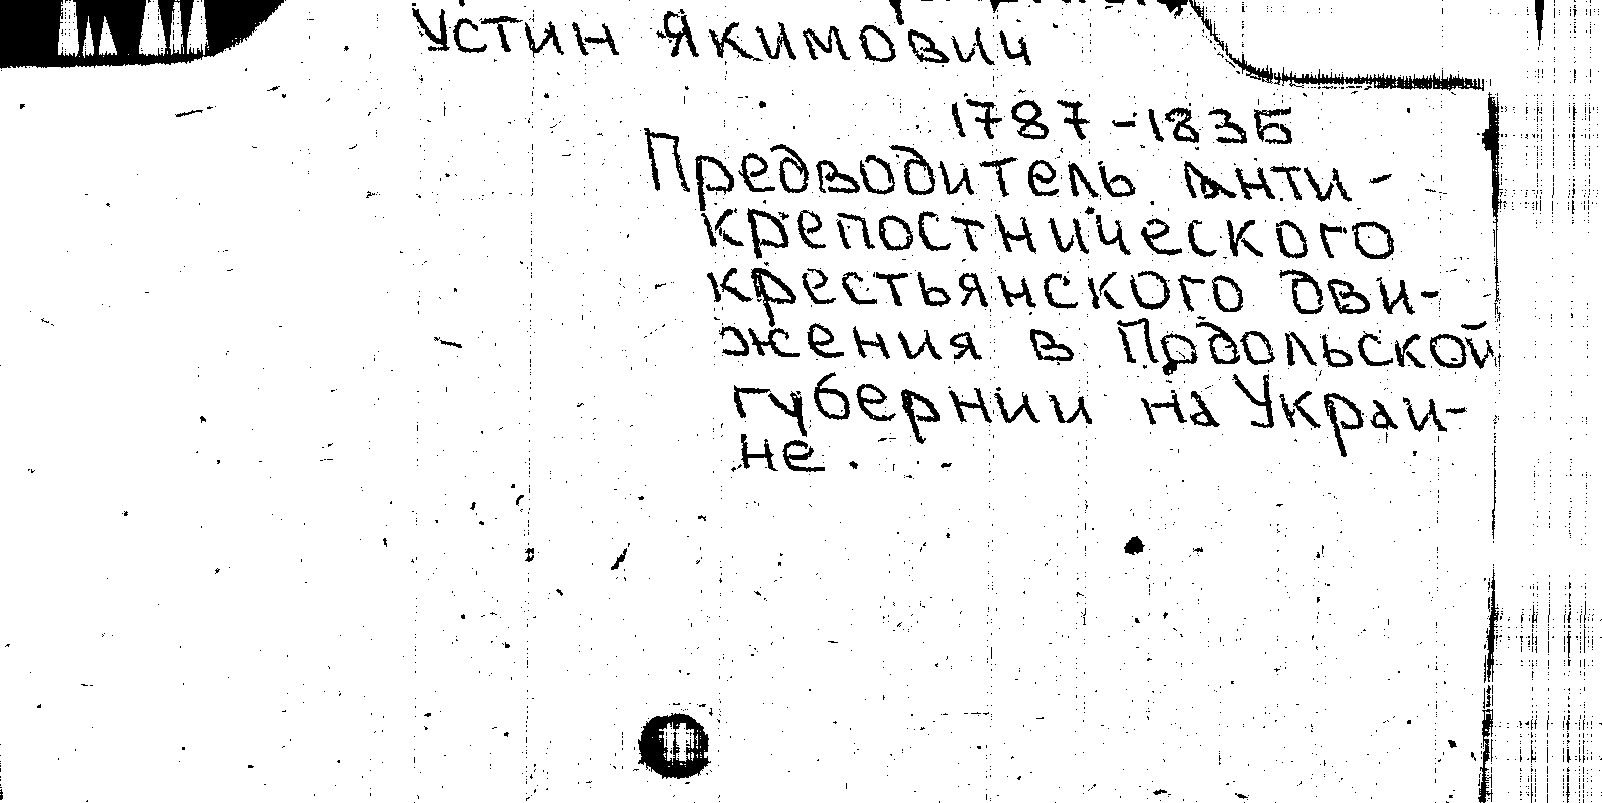 Устин Якимович
1787-1835
Предводитель анти-
крепостнического
крестьянского дви-
жения в Подольской
губернии на Украи-
не.